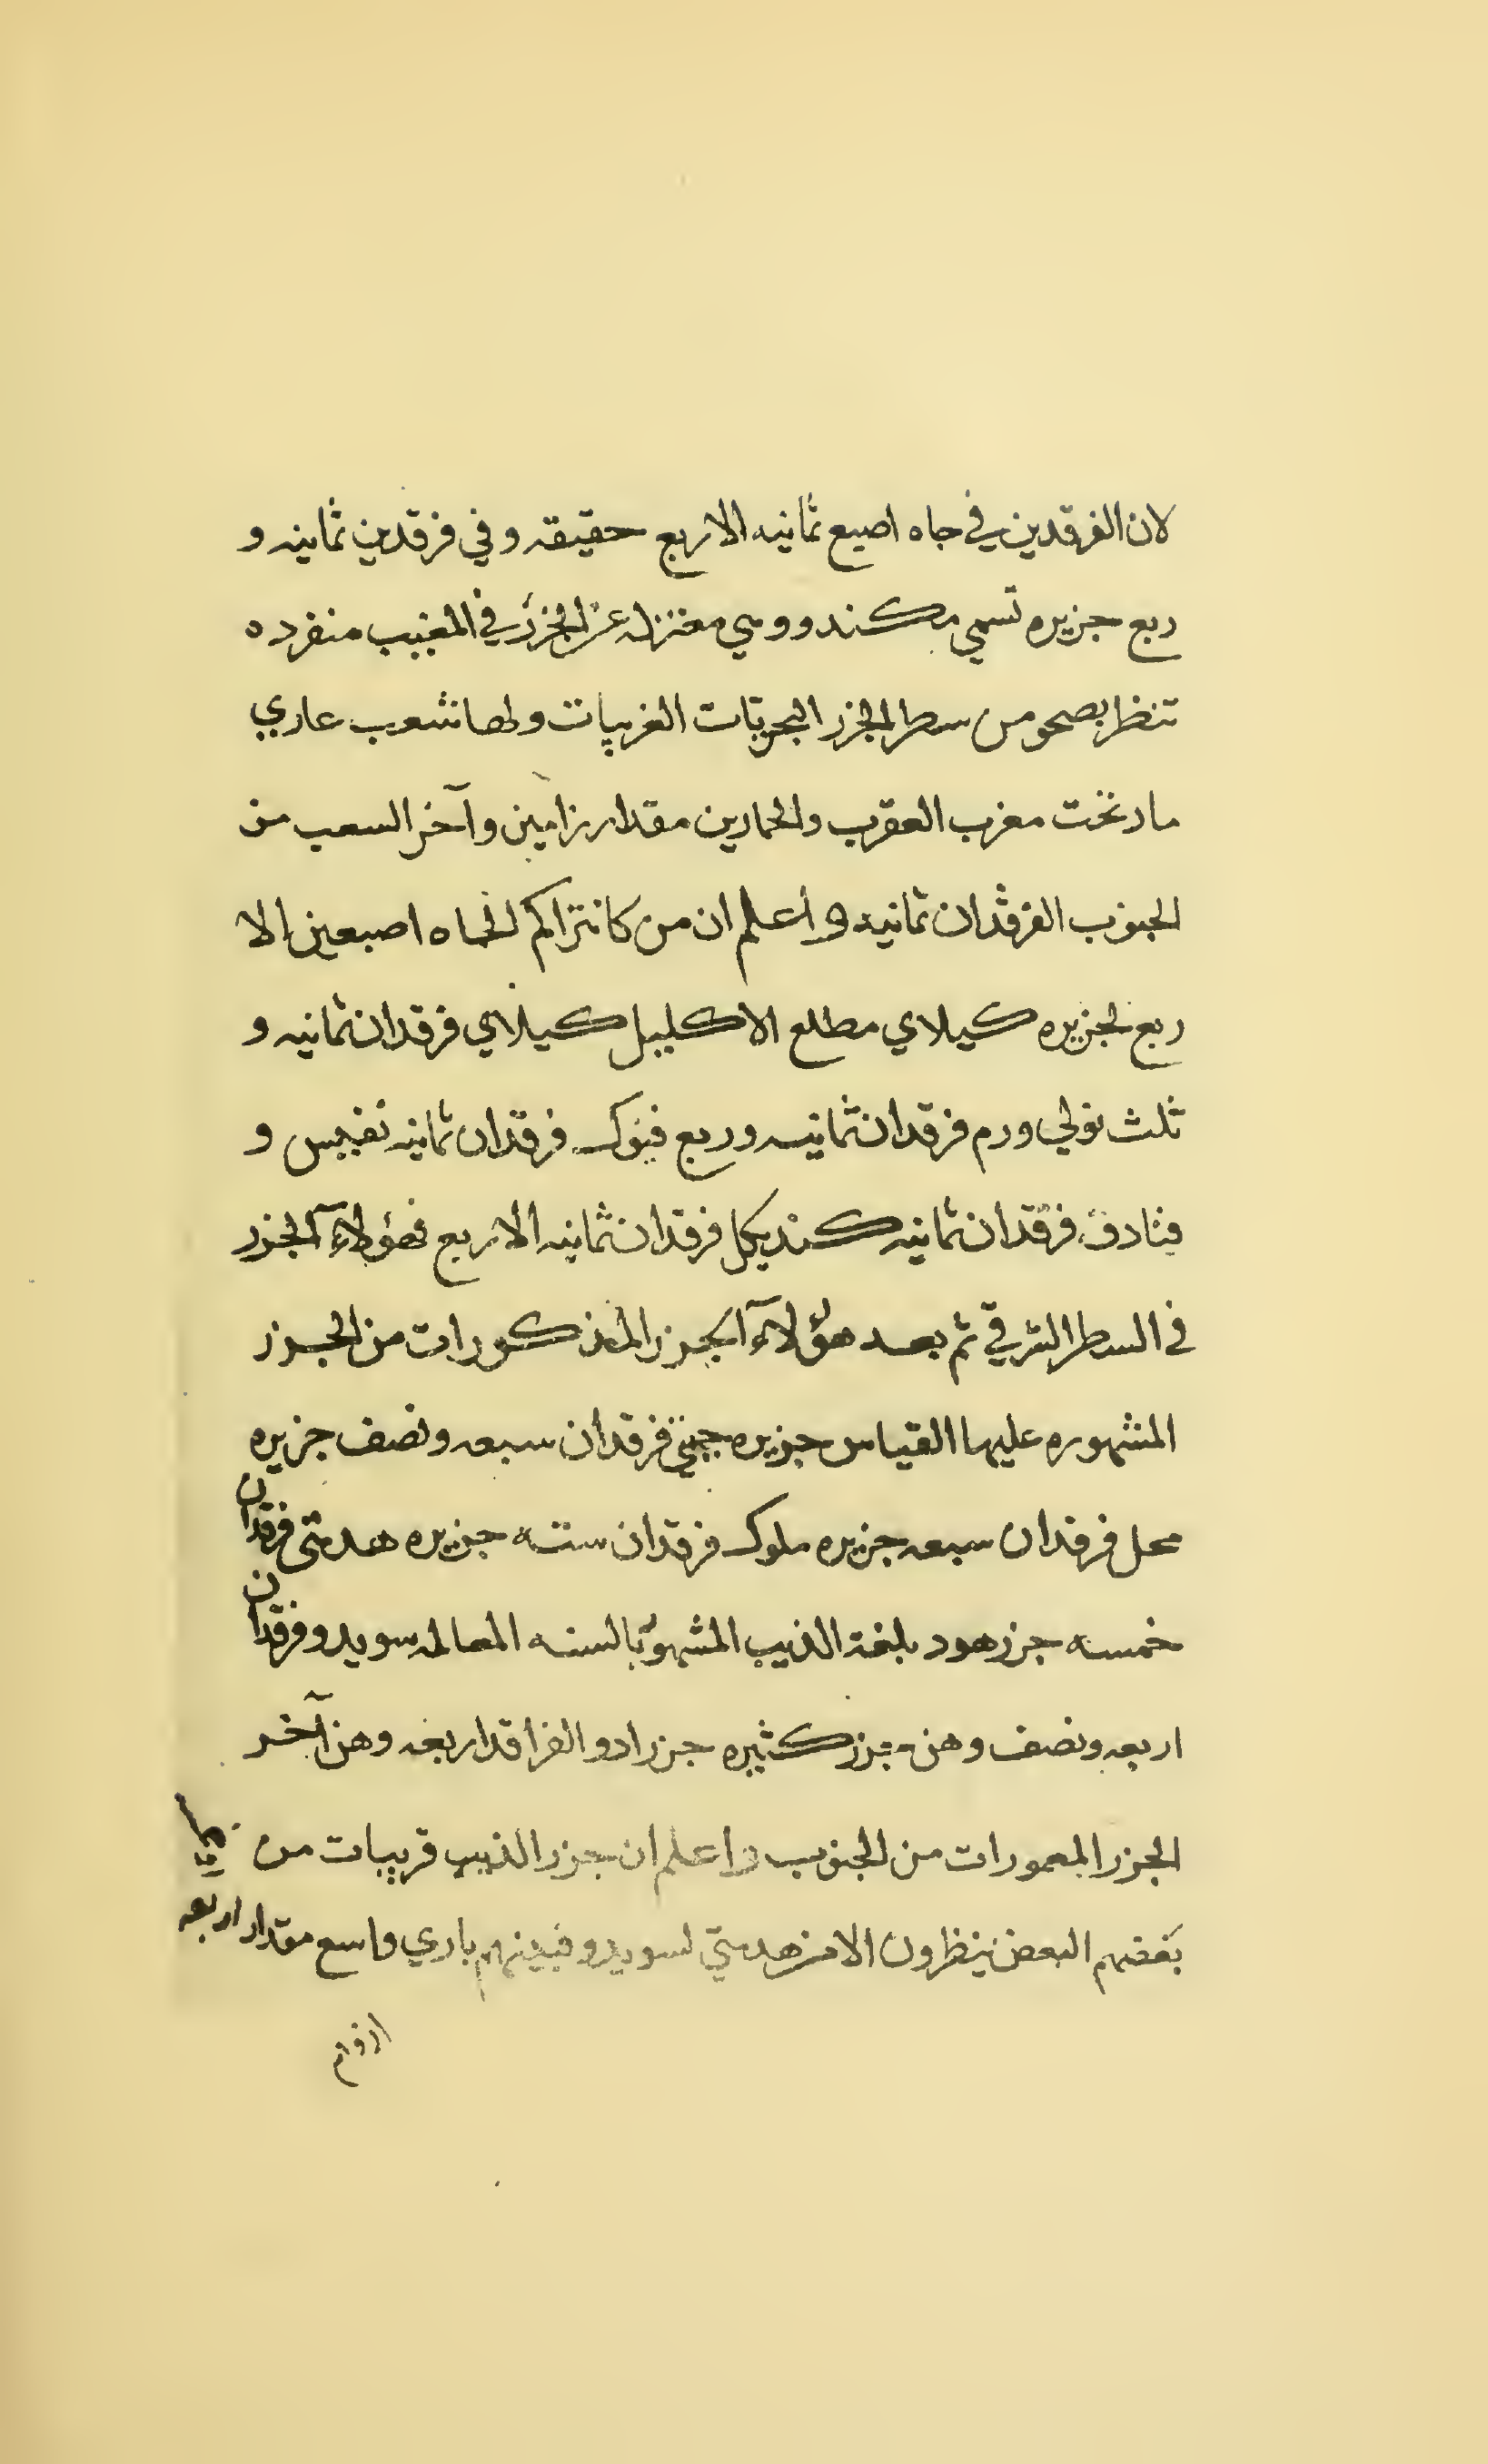 لان الفرقدين في جاه اصبع ثمانيه الا ربع حقيقه وفي فرقدين ثمانيه و
ربع جزيره تسمي مكندوو وهي معتزله عن الجزر في المغيب منفرده
تنظر بصحو من سطر الجزر البحريات الغربيات ولها شعب عاري
ماد تحت مغرب العقرب والحمارين مقدار زامين وآخر السعب من
الجنوب الفرقدان ثمانيه واعلم ان من كانتراكم لجاه اصبعين الا
ربع لجزيره كيلاي مطلع الاكليل كيلاي فرقدان ثمانيه و
ثلث نولي ورم فرقدان ثمانيه وربع فنوك فرقدان ثمانيه نفيس و
فنادق فرقدان ثمانيه كنديكل فرقدان ثمانيه الا ربع فهؤلاء الجزر
في السطر الشرقي ثم بعد هؤلاء الجزر المذكورات من الجزر
المشهوره عليها القياس جزيره فرقدان سبعه ونصف جزيره
محل فرقدان سبعه جزيره ملوك فرقدان سته جزيره هدمتى فرقدان
خمسه جزر هود بلغة الذيب المشهور بالسنه المعالمه سويدو فرقدان
اربعه ونصف وهن جزر كثيره جزر ادو الفراقد اربعه وهن آخر
الجزر المعمورات من الجنوب واعلم ان جزر الذيب قريبات من
بعضهم البعض ينظرون الا من هدمتي لسويدو فبينهم باري واسع مقدار اربعه
ازوام